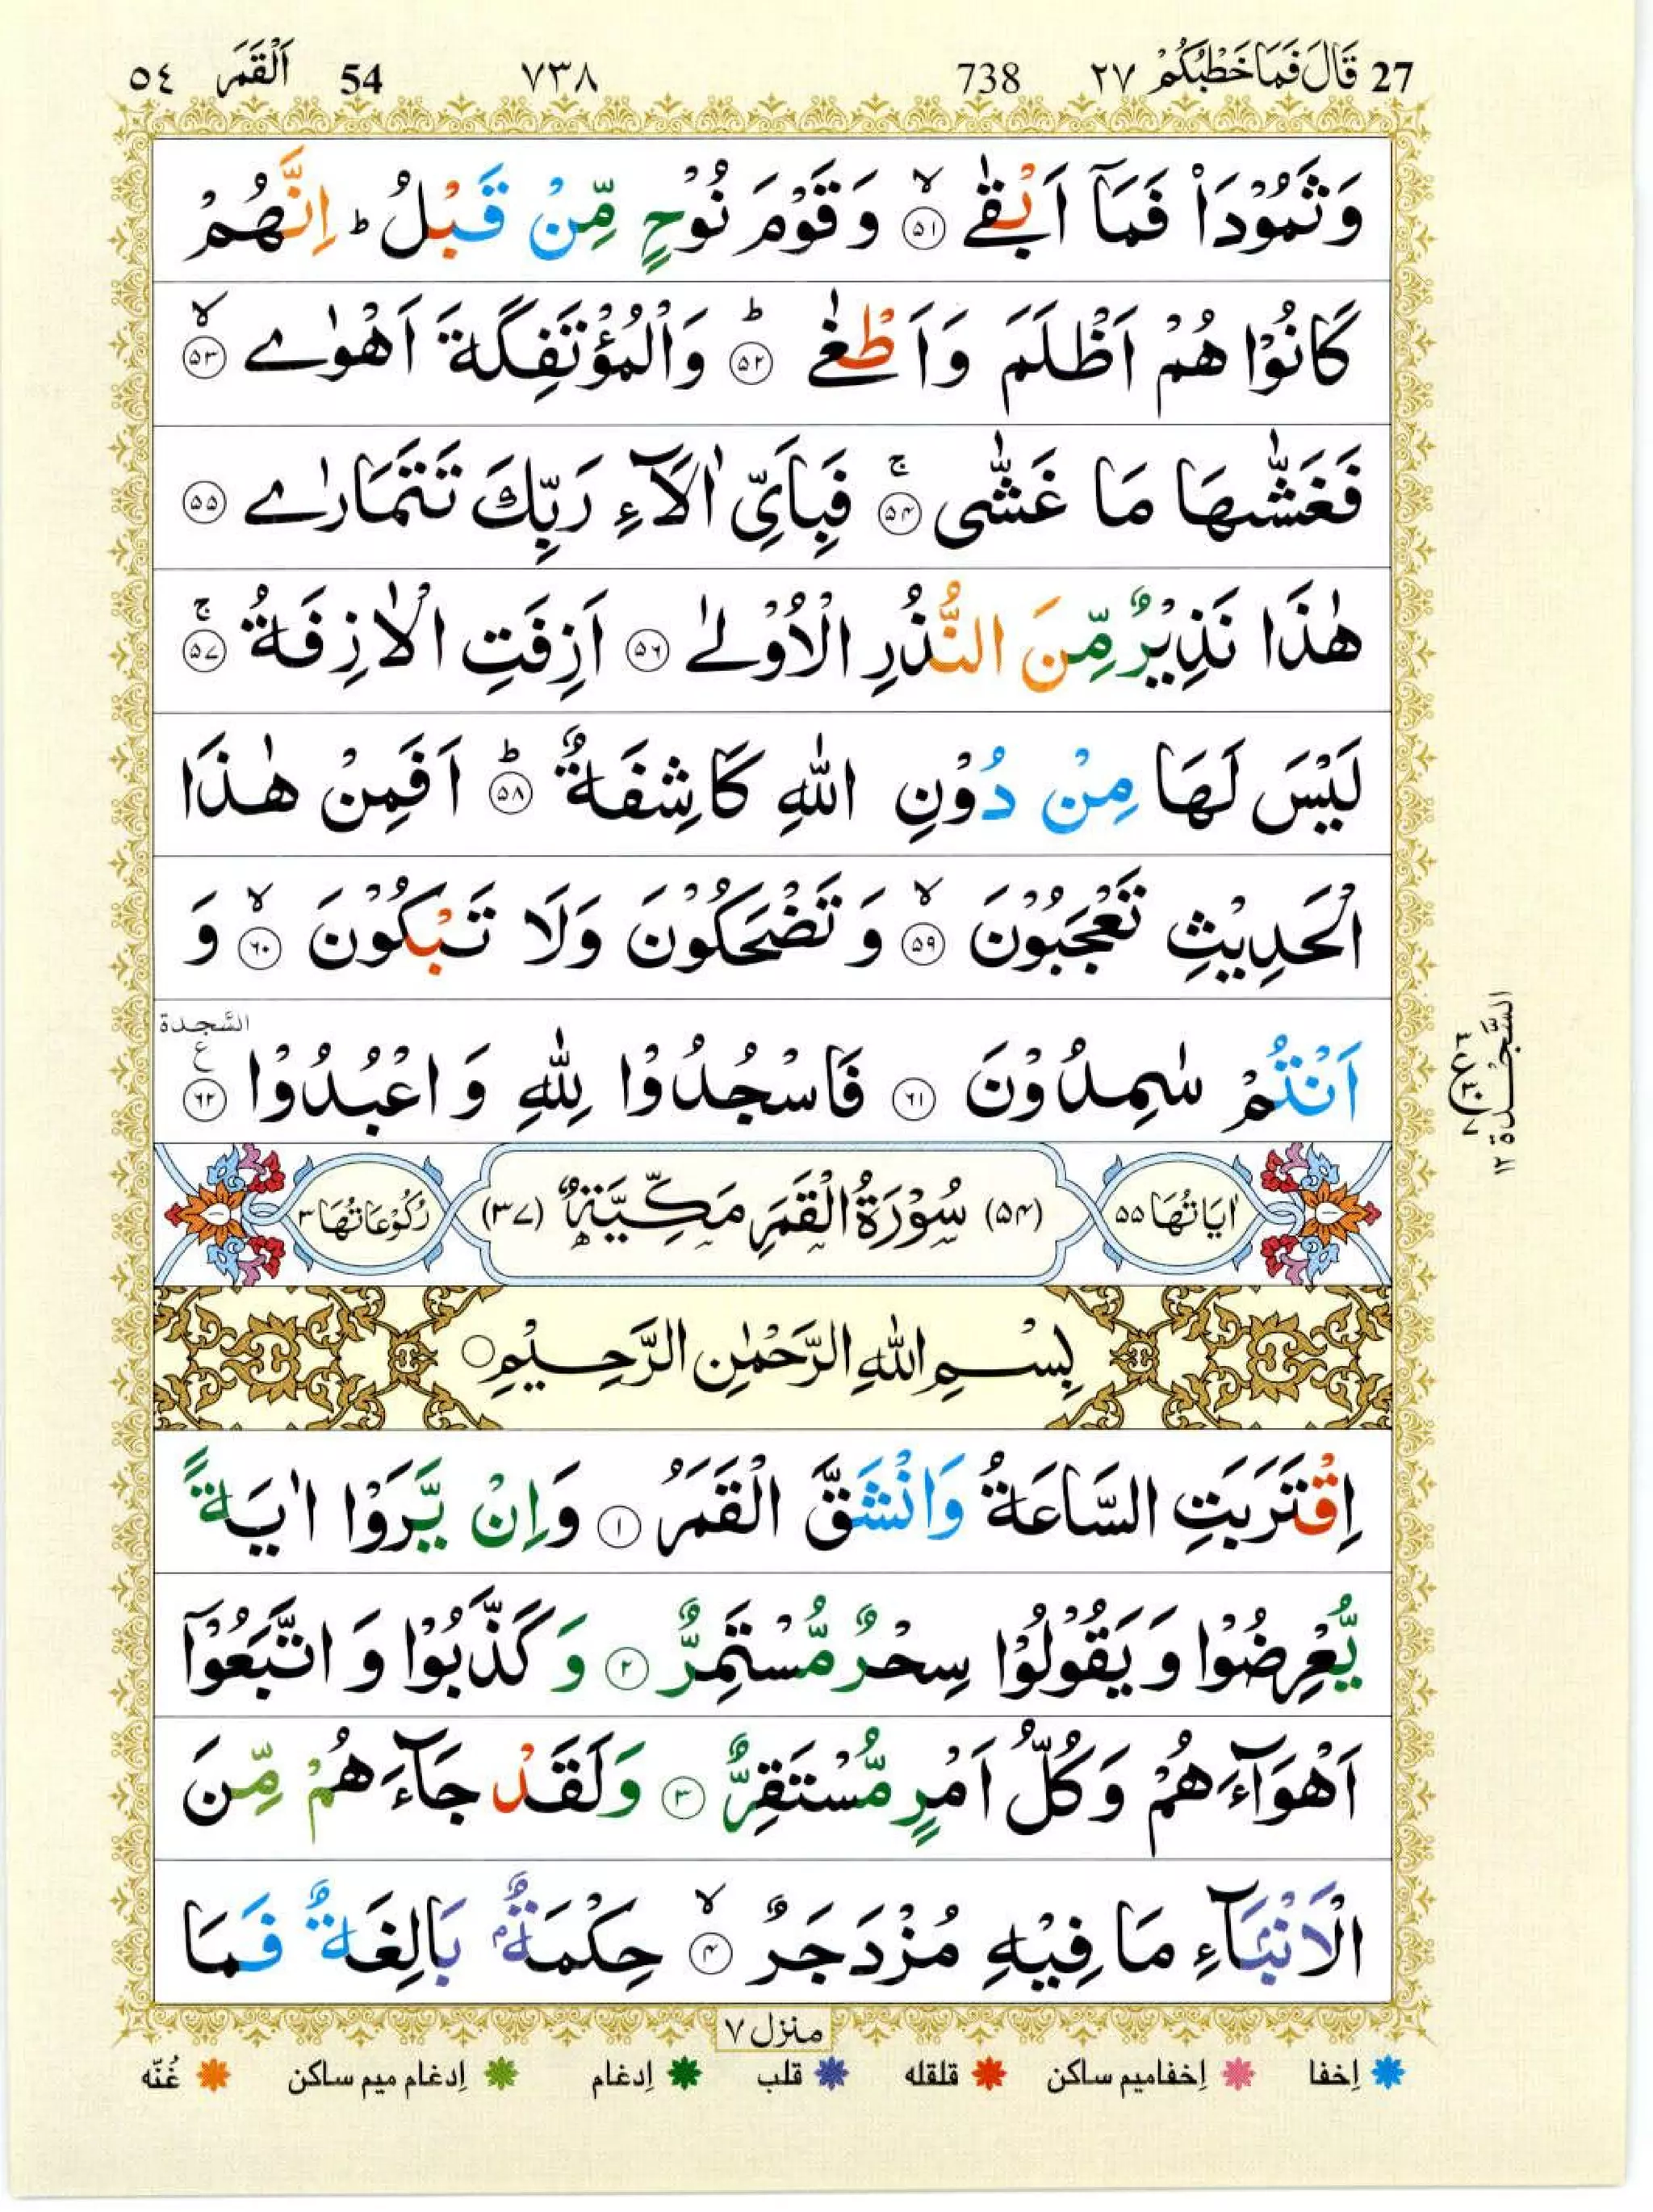 27 قَالَ فَمَا خَطْبُكُمْ ٢٧ 738 ٧٣٨ 54 اَلْقَمَر ٥٤
وَثَمُوْدَا۟ فَمَاۤ اَبْقٰىۙ ۵۱ وَ قَوْمَ نُوْحٍ مِّنْ قَبْلُؕ اِنَّهُمْ
كَانُوْا هُمْ اَظْلَمَ وَاَطْغٰىؕ ۵۲ وَالْمُؤْتَفِكَةَ اَهْوٰىۙ ۵۳
فَغَشّٰىهَا مَا غَشّٰىۚ ۵۴ فَبِاَىِّ اٰلَآءِ رَبِّكَ تَتَمَارٰى ۵۵
هٰذَا نَذِيْرٌ مِّنَ النُّذُرِ الْاُوْلٰى ۵۶ اَزِفَتِ الْاٰزِفَةُۚ ۵۷
لَيْسَ لَهَا مِنْ دُوْنِ اللّٰهِ كَاشِفَةٌؕ ۵۸ اَفَمِنْ هٰذَا
الْحَدِيْثِ تَعْجَبُوْنَۙ ۵۹ وَ تَضْحَكُوْنَ وَلَا تَبْكُوْنَۙ ۶۰ وَ
اَنْتُمْ سٰمِدُوْنَ ۶۱ فَاسْجُدُوْا لِلّٰهِ وَ اعْبُدُوْا ۶۲ ع السَّجدة
السَّجْدة ١٢
اٰيَاتُهَا ۵۵ (۵۴) سُوْرَةُ الْقَمَرِ مَكِّيَّةٌ (۳۷) رُكُوْعَاتُهَا ۳
بِسْمِ اللّٰهِ الرَّحْمٰنِ الرَّحِيْمِ
اِقْتَرَبَتِ السَّاعَةُ وَانْشَقَّ الْقَمَرُ ۱ وَاِنْ يَّرَوْا اٰيَةً
يُّعْرِضُوْا وَ يَقُوْلُوْا سِحْرٌ مُّسْتَمِرٌّ ۲ وَ كَذَّبُوْا وَ اتَّبَعُوْۤا
اَهْوَآءَهُمْ وَكُلُّ اَمْرٍ مُّسْتَقِرٌّ ۳ وَلَقَدْ جَآءَهُمْ مِّنَ
الْاَنْۢبَآءِ مَا فِيْهِ مُزْدَجَرٌۙ ۴ حِكْمَةٌۢ بَالِغَةٌ فَمَا
منزل ٧
اِخفا اِخفامیم ساکن قلقله قلب اِدغام اِدغام میم ساکن غُنّه